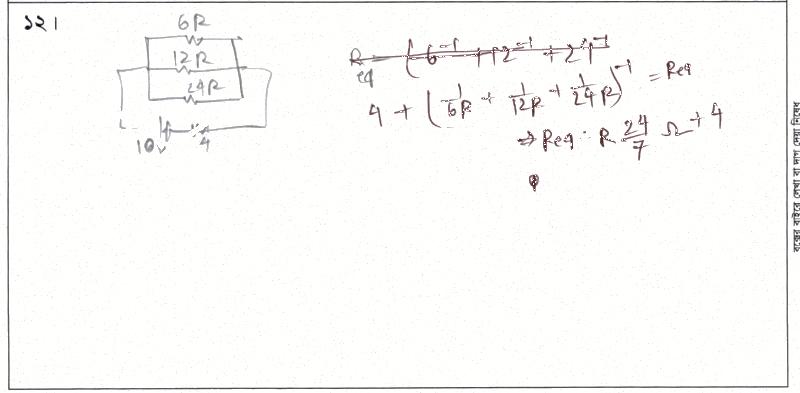 ১২।
6R
12R
24R
10v
4
R_eq (6⁻¹ + 12⁻¹ + 24⁻¹
4 + (1/6R + 1/12R + 1/24R)⁻¹ = Req
⇒ Req = R 24/7 Ω + 4
বক্সের বাইরে লেখা বা দাগ দেয়া নিষেধ